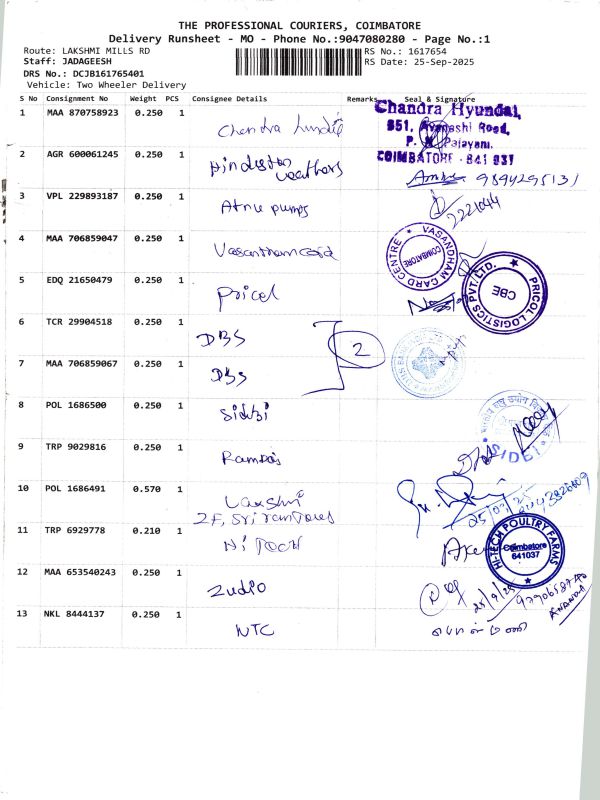 THE PROFESSIONAL COURIERS, COIMBATORE
Delivery Runsheet - MO - Phone No.:9047080280 - Page No.:1
Route: LAKSHMI MILLS RD
RS No.: 1617654
Staff: JADAGEESH
RS Date: 25-Sep-2025
DRS No.: DCJB161765401
Vehicle: Two Wheeler Delivery
S No Consignment No Weight PCS Consignee Details Remarks Seal & Signature
1 MAA 870758923 0.250 1 Chandra
Chandra Hyundai,
951, Avanashi Road,
COIMBATORE - 641 037
2 AGR 600061245 0.250 1 Hindustan
9894295131
3 VPL 229893187 0.250 1 Atne pumps
2221044
4 MAA 706859047 0.250 1 Vasantham card
VASANDHAM CARD CENTRE
COIMBATORE
5 EDQ 21650479 0.250 1 Pricol
PRICOL LOGISTICS PVT. LTD.
CBE
6 TCR 29904518 0.250 1 DBS
2
7 MAA 706859067 0.250 1 DBS
8 POL 1686500 0.250 1 Sidbi
SIDBI
9 TRP 9029816 0.250 1 Ramdas
10 POL 1686491 0.570 1 Laxshmi
2F, Sri ram
11 TRP 6929778 0.210 1 Hi Tech
HI-TECH POULTRY FARMS
Coimbatore
641037
12 MAA 653540243 0.250 1 Zudio
25/9/25
13 NKL 8444137 0.250 1 NTC